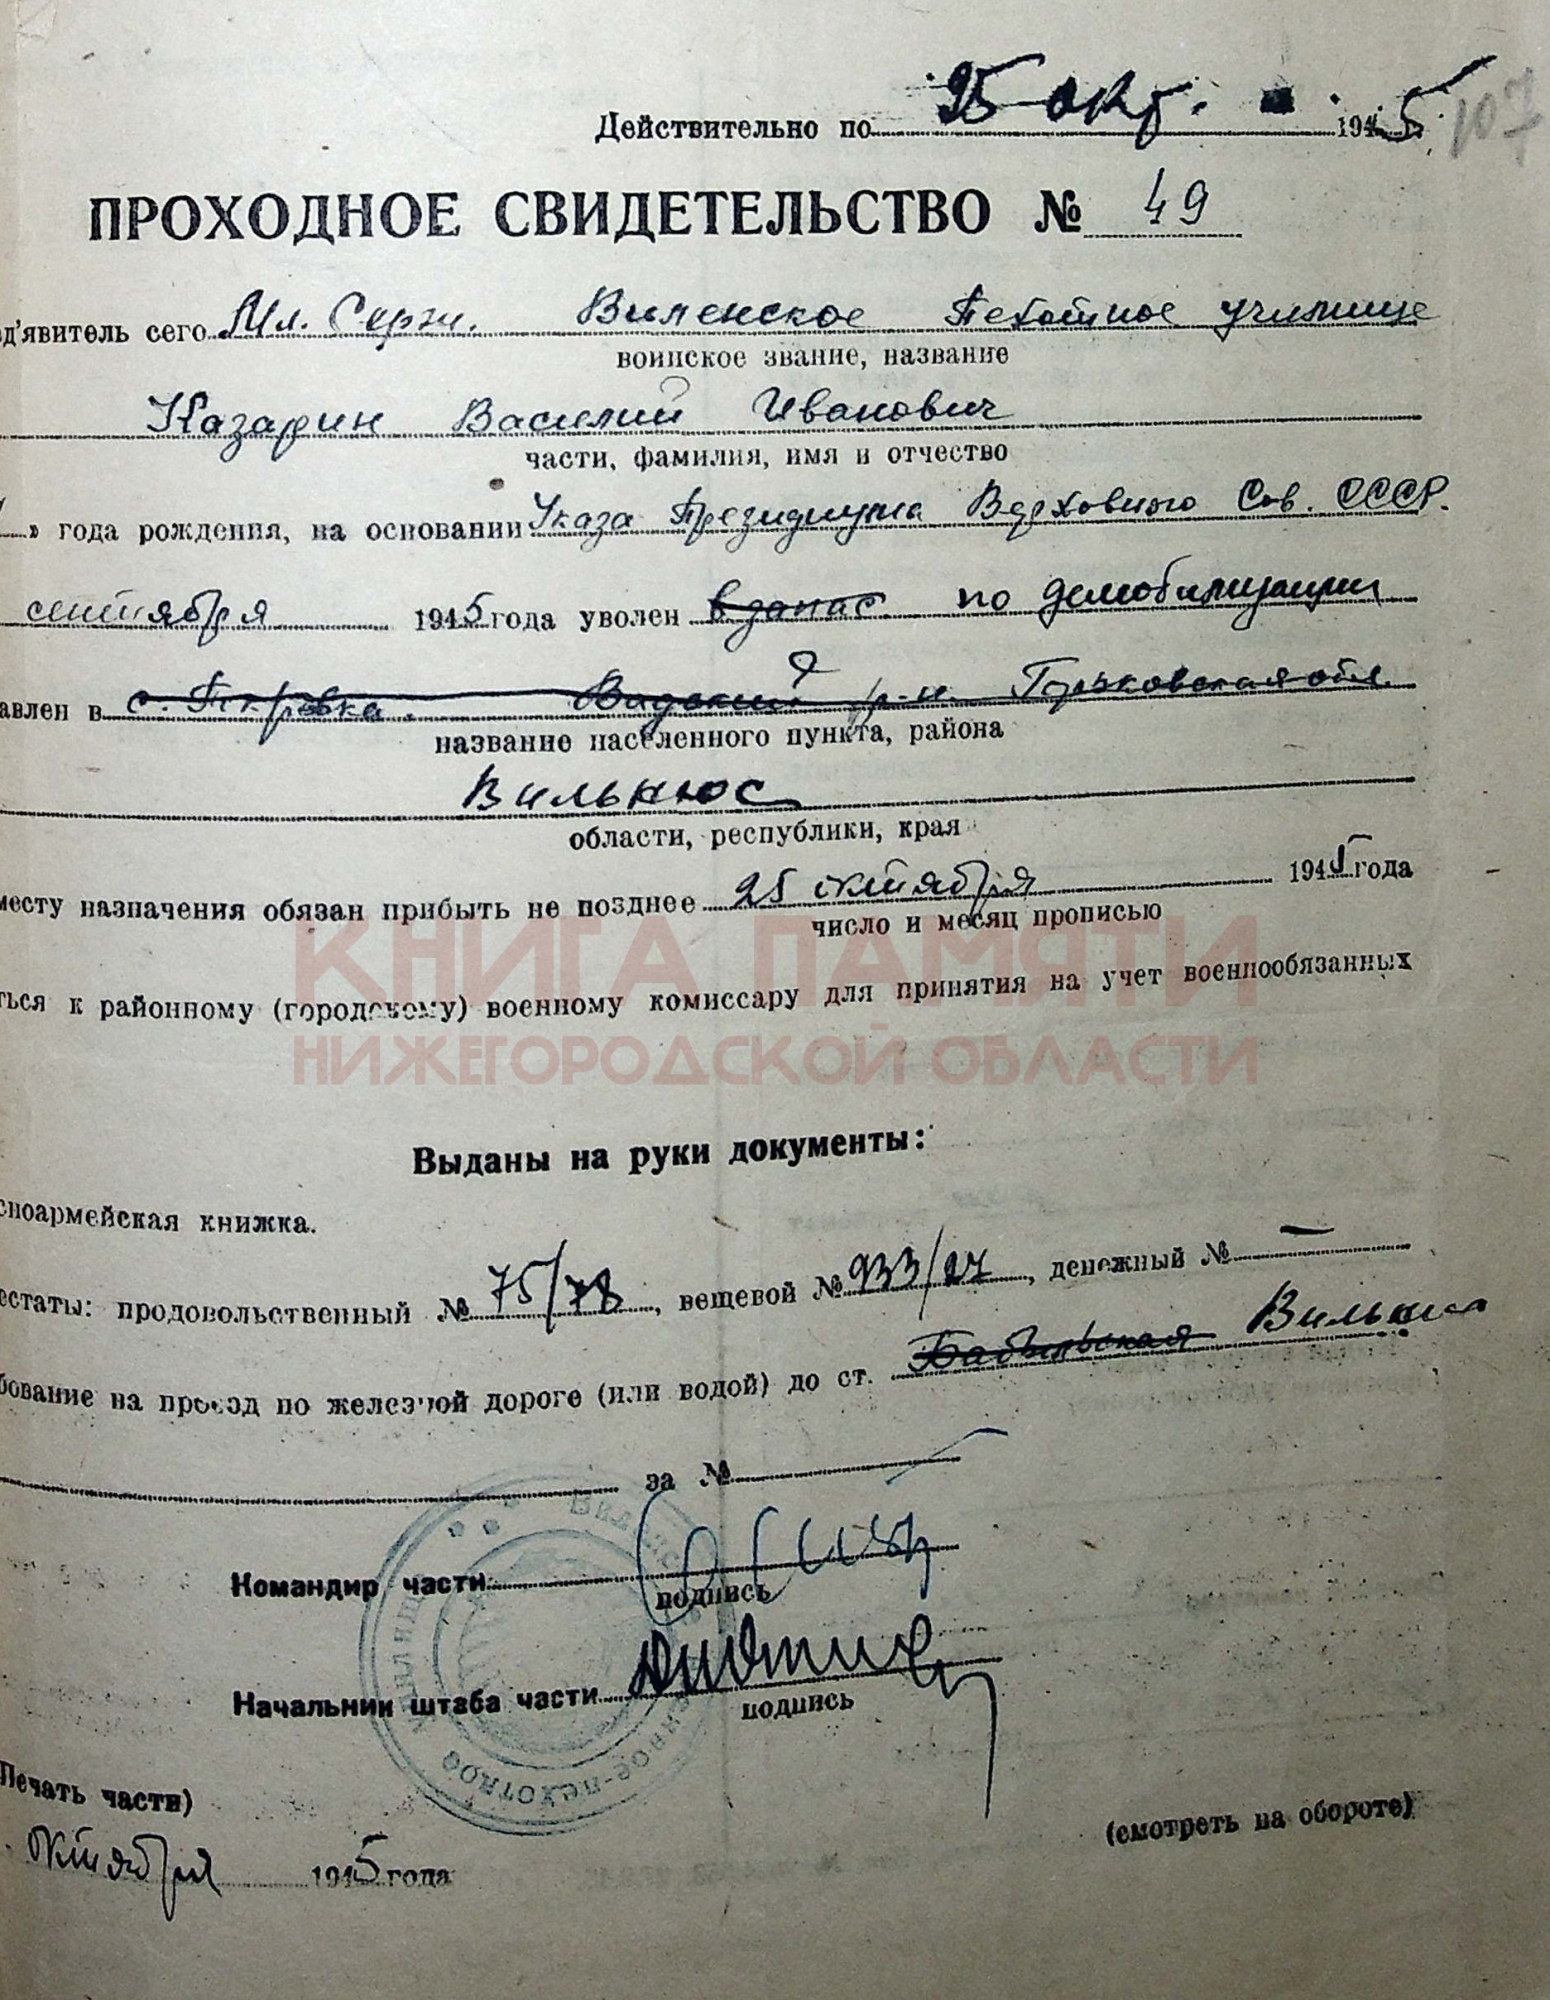 107
Действительно по 25 окт. 1945
ПРОХОДНОЕ СВИДЕТЕЛЬСТВО № 49
д'явитель сего Мл. Серж. Виленское Пехотное училище
воинское звание, название
Казарин Василий Иванович
части, фамилия, имя и отчество
» года рождения, на основании Указа Президиума Верховного Сов. СССР.
сентября 1945 года уволен в запас по демобилизации
авлен в с. Петровка. Вадский р-н. Горьковская обл.
название населенного пункта, района
Вильнюс
области, республики, края
месту назначения обязан прибыть не позднее 25 октября 1945 года
число и месяц прописью
ться к районному (городскому) военному комиссару для принятия на учет военнообязанных
КНИГА ПАМЯТИ
НИЖЕГОРОДСКОЙ ОБЛАСТИ
Выданы на руки документы:
сноармейская книжка.
естаты: продовольственный № 75/78, вещевой № 933/27, денежный № —
бование на проезд по железной дороге (или водой) до ст. Бобыльская Вильнюс
за №
Командир части
подпись
Начальник штаба части
подпись
Печать части)
(смотреть на обороте)
октября 1945 года